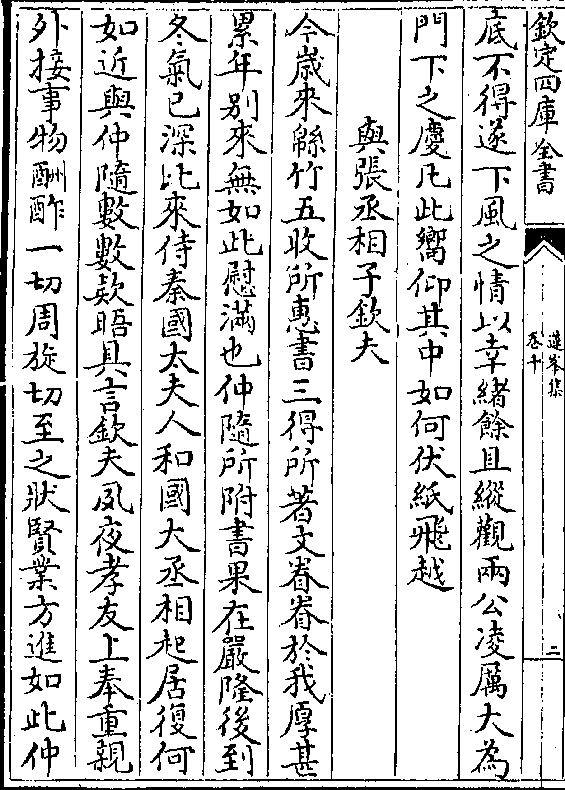 欽定四庫全書
蓮峯集
卷十
二
底不得遂下風之情以幸緒餘且縱觀兩公凌厲大為
門下之慶凡此嚮仰其中如何伏紙飛越
與張丞相子欽夫
今歲來緜竹五收所惠書三得所著文眷眷於我厚甚
累年别來無如此慰滿也仲隨所附書果在嚴隆後到
冬氣已深比來侍秦國太夫人和國大丞相起居復何
如近與仲隨數數欵晤具言欽夫夙夜孝友上奉重親
外接事物酬酢一切周旋切至之狀賢業方進如此仲